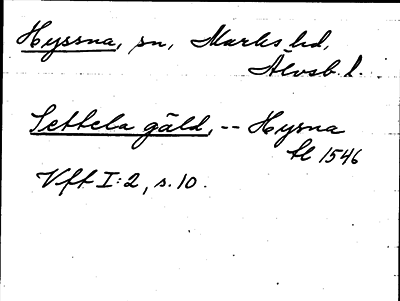 Hyssna, sn, Marks hd,
Älvsb. l.
Settela gäld, -- Hysna
tl 1546
Vft I:2, s. 10.